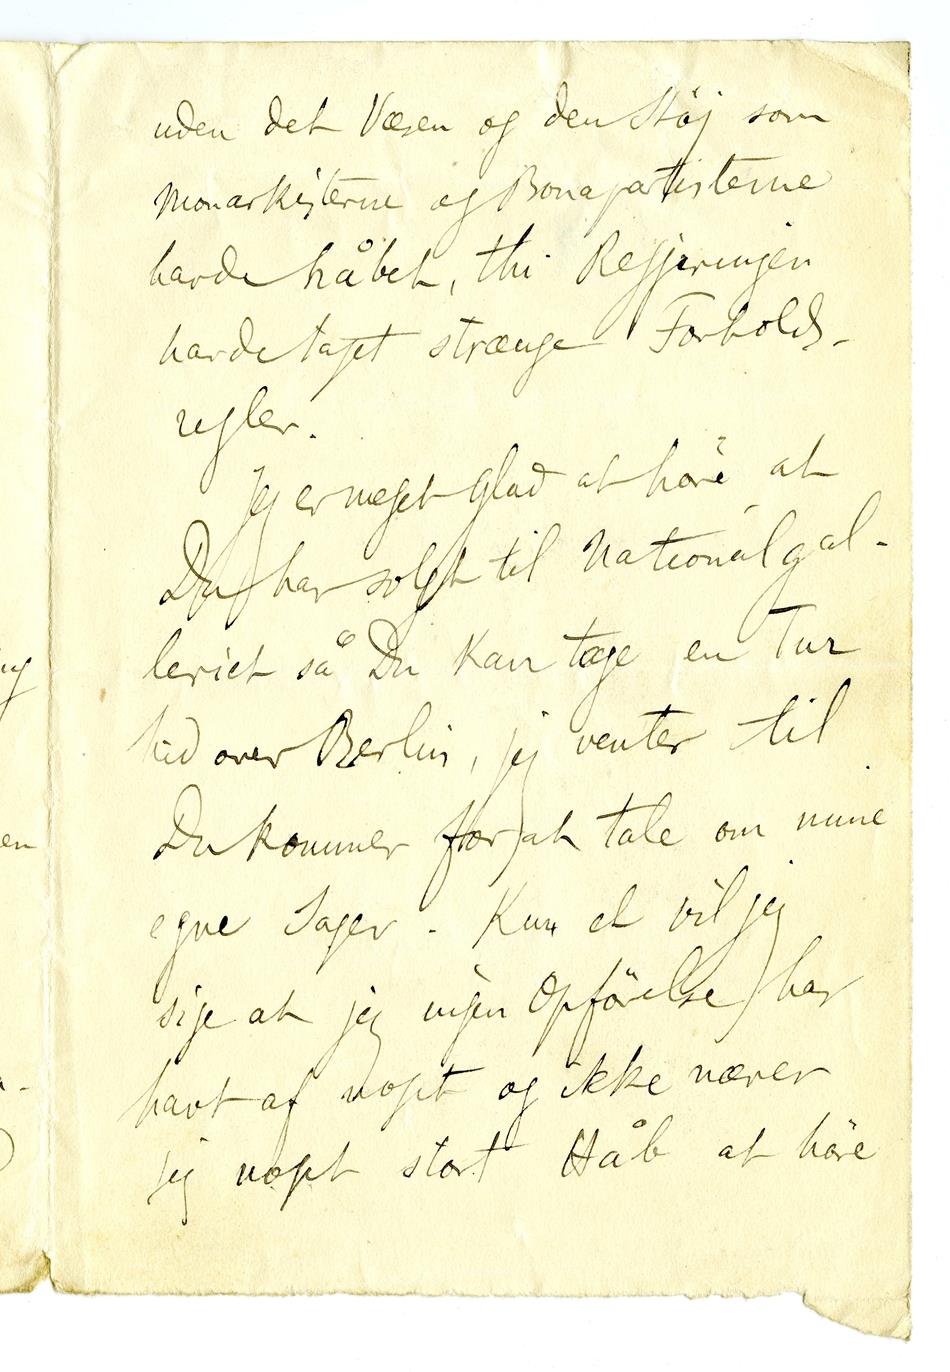 uden det Væsen og den Støj som
Monarkisterne og Bonapartisterne
havde håbet, thi Regjeringen
havde taget strænge Forholds-
regler.
Jeg er meget glad at höre at
Du har solgt til Nationalgal-
leriet så Du kan tage en Tur
hid over Berlin, jeg venter til
Du kommer for at tale om mine
egne Sager. Kun et vil jeg
sige at jeg ingen Opförelse har
havt af noget og ikke nærer
jeg noget stort Håb at höre
en